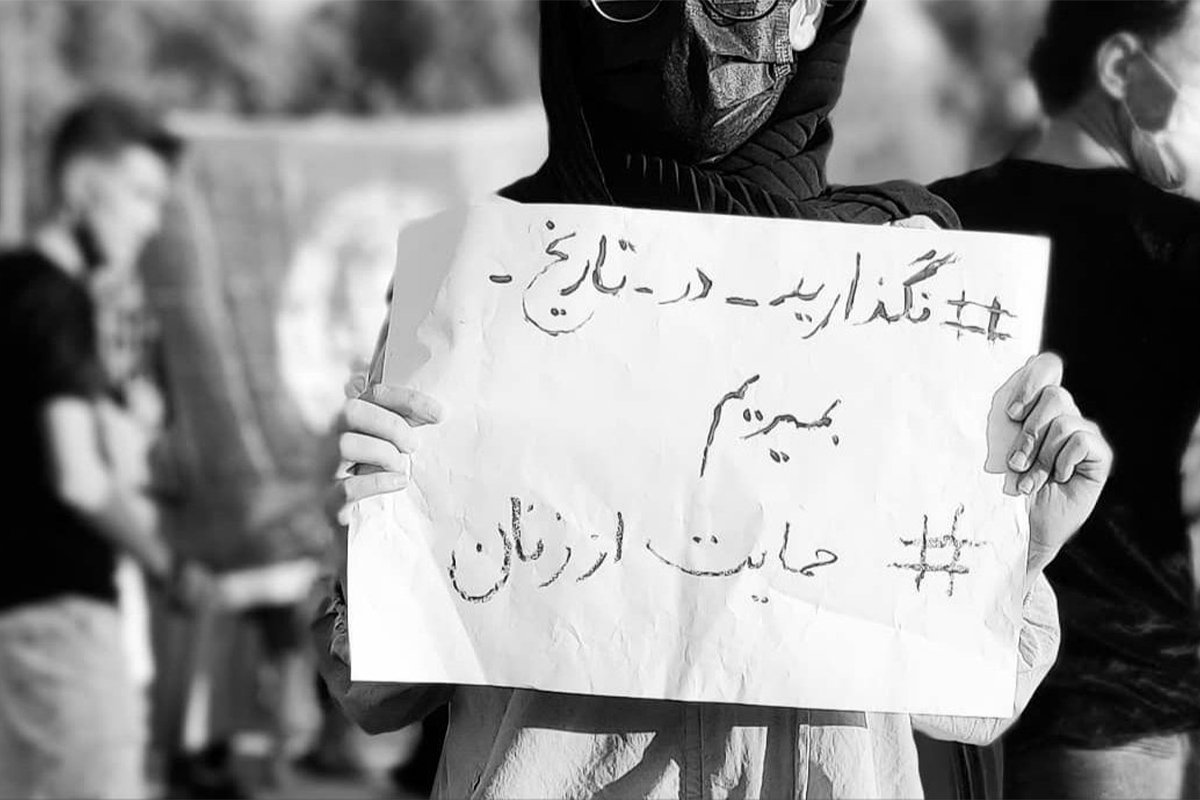 #نگذارید_در_تاریخ_
بمیریم
# حمایت از زنان